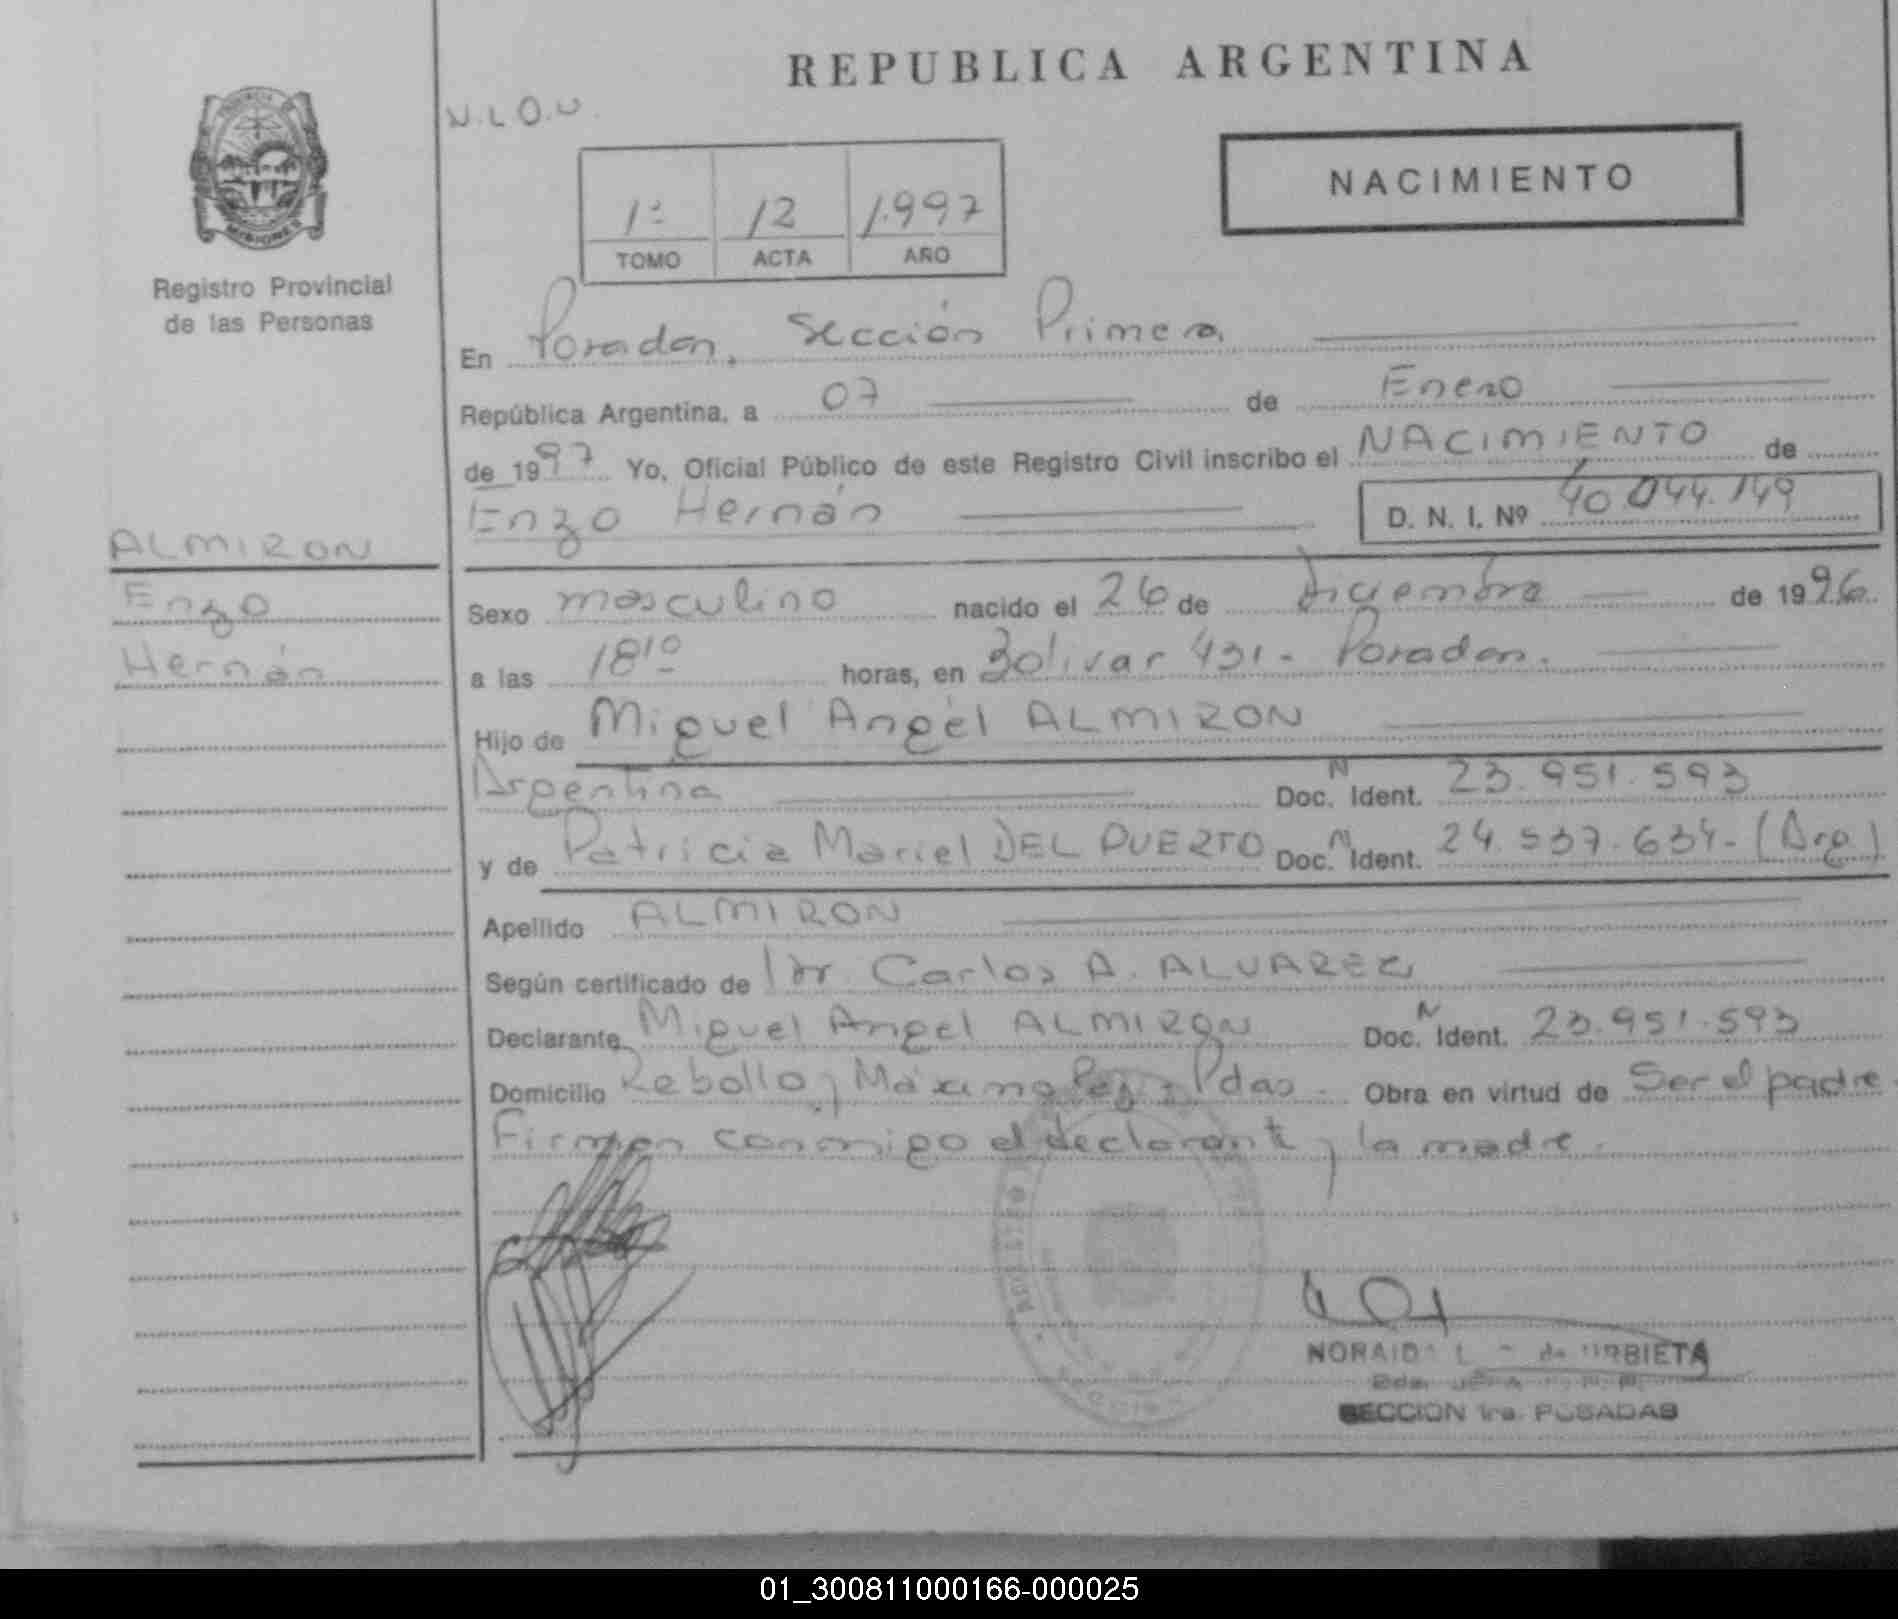 REPUBLICA ARGENTINA
N.L.O.U.
NACIMIENTO
1º 12 1.997
TOMO ACTA AÑO
MISIONES
Registro Provincial
de las Personas
En Posadas, Sección Primera
República Argentina, a 07 de Enero
de 1997 Yo, Oficial Público de este Registro Civil inscribo el NACIMIENTO de
Enzo Hernán D. N. I. Nº 40.044.149
ALMIRON
Enzo
Hernán
Sexo masculino nacido el 26 de diciembre de 1996.
a las 18¹⁰ horas, en Bolivar 431 - Posadas.
Hijo de Miguel Angel ALMIRON
Argentina Doc. N Ident. 23.951.593
y de Patricia Mariel DEL PUERTO Doc. N Ident. 24.537.634- (Arg)
Apellido ALMIRON
Según certificado de Dr. Carlos A. ALVAREZ
Declarante Miguel Angel ALMIRON Doc. N Ident. 23.951.593
Domicilio Rebollo y Máximo Paz - Pdas. Obra en virtud de Ser el padre.
Firman conmigo el declarante y la madre.
de URBIETA
SECCION 1ra. POSADAS
01_300811000166-000025